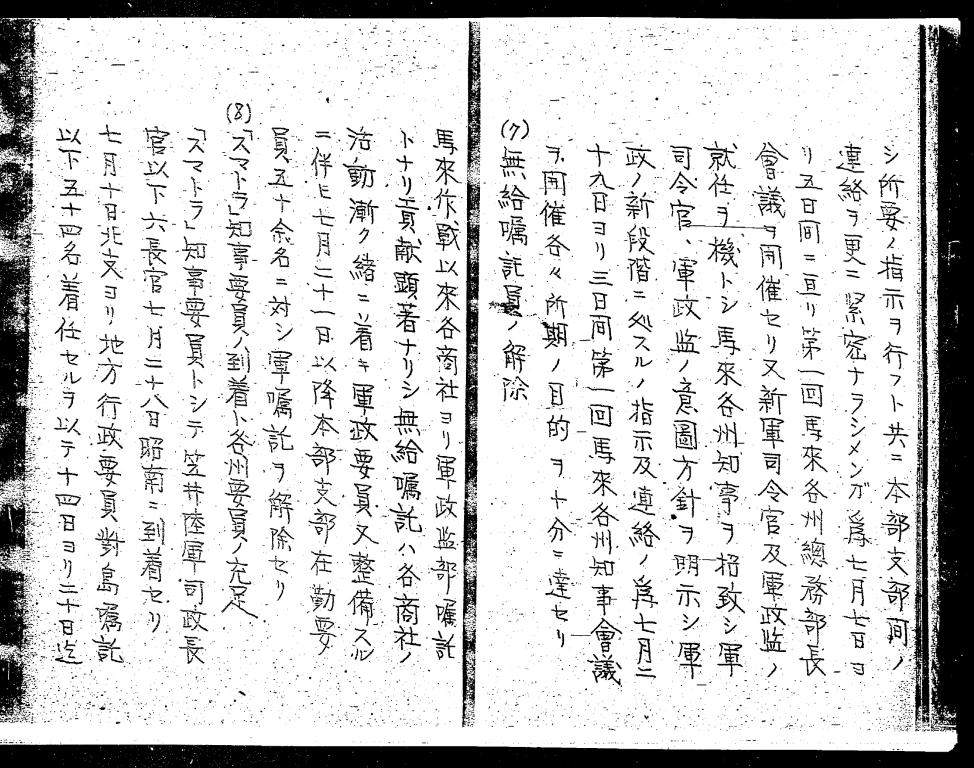 シ所要ノ指示ヲ行フト共ニ本部支部間ノ
連絡ヲ更ニ緊密ナラシメンガ為七月七日ヨ
リ五日間ニ亘リ第一回馬來各州總務部長
會議ヲ開催セリ又新軍司令官及軍政監ノ
就任ヲ機トシ馬來各州知事ヲ招致シ軍
司令官、軍政監ノ意圖方針ヲ明示シ軍
政ノ新段階ニ処スルノ指示及連絡ノ為七月二
十九日ヨリ三日間第一回馬來各州知事會議
ヲ開催各々所期ノ目的ヲ十分ニ達セリ
(7)
無給嘱託員ノ解除
馬來作戰以來各商社ヨリ軍政監部嘱託
トナリ貢献顕著ナリシ無給嘱託ハ各商社ノ
活動漸ク緒ニツ着キ軍政要員又整備スル
ニ伴ヒ七月二十一日以降本部支部在勤要
員五十余名ニ対シ軍嘱託ヲ解除セリ
(8)
「スマトラ」知事要員ノ到着ト各州要員ノ充足
「スマトラ」知事要員トシテ笠井陸軍司政長
官以下六長官七月二十八日昭南ニ到着セリ
七月十日北支ヨリ地方行政要員對島嘱託
以下五十四名着任セルヲ以テ十四日ヨリ二十日迄